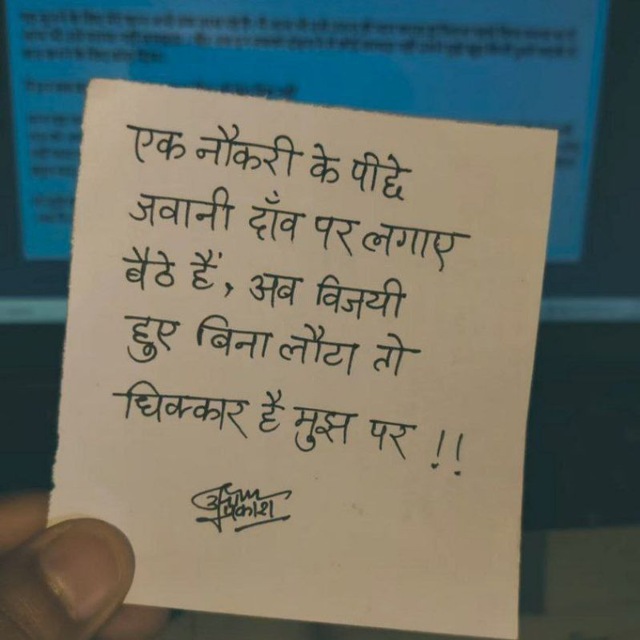 एक नौकरी के पीछे
जवानी दाँव पर लगाए
बैठे हैं, अब विजयी
हुए बिना लौटा तो
धिक्कार है मुझ पर !!